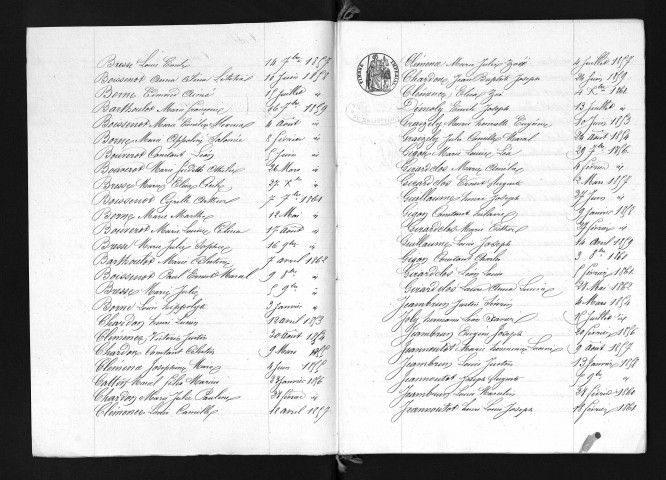 Bresse Louis Emile 14 7bre 1857
Boissenot Anna Elina 16 Juin 1858
Borne Edouard Aimé 15 Juillet "
Barthoulot Marie 16 7bre 1859
Boissenot Marie 4 Août "
Borne Marie Appoline 8 février "
Boisserot Constant Léon 5 Juin "
Boisserot Marie Judith 26 Mars "
Bresse Marie Elise 27 Xbre "
Boissenot Cyrille Arthur 7 7bre 1861
Borne Marie Marthe 12 Mai "
Boisserot Marie Louise Elina 17 Août "
Bresse Marie Julie Sophie 16 9bre "
Barthoulot Marie Célestine 7 avril 1862
Boissenot Paul Ernest Marcel 9 8bre "
Bresse Marie Julie 5 9bre "
Borne Louis Hippolyte 2 Janvier "
Chardon Henri Lucien 12 avril 1853
Clémence Victorin Justin 20 août 1854
Chardon Constant Célestin 9 Mars 1855
Clémence Josephine Marie 4 Juin 1855
Cattin Marcel Félix Marie 23 Janvier 1856
Chardon Marie Julie Pauline 28 février "
Clémence Louis Camille 12 avril 1857
Clémence Marie Julie Zoé 4 Juillet 1857
Chardon Jean Baptiste Joseph 24 Juin 1859
Clémence Elina Zoé 4 Xbre 1861
Donoly Emile Joseph 13 Juillet "
Graizely Marie Jeannette Eugénie 30 Juin 1853
Graizely Jules Camille Marcel 26 Août 1854
Gigon Marie Louise Léa 29 7bre 1856
Girardclos Marie Amélie 4 février "
Girardclos Ernest Auguste 2 Mars 1857
Guillaume Henri Joseph 27 Juin "
Gigon Constant 9 Janvier 1858
Girardclos Marie 27 février "
Guillaume Louis Joseph 14 avril 1859
Gigon Constant Charles 3 8bre 1860
Girardclos Léon Louis 5 février 1861
Girardclos Laure Anna 28 Mai 1862
Jeambrun Justin 4 Mai 1854
Joly Xavier 18 Juillet "
Jeambrun Eugène Joseph 20 février 1856
Jeannoutot Marie 9 août 1857
Jeambrun Louis Justin 13 Janvier 1858
Jeannoutot Joseph Auguste 5 9bre "
Jeambrun Louis 28 février 1860
Jeannoutot Louis Joseph 18 février 1861